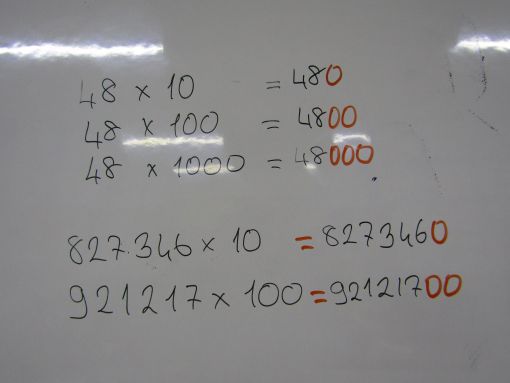 48 × 10 = 480
48 × 100 = 4800
48 × 1000 = 48000
827.346 × 10 = 8273460
921217 × 100 = 92121700